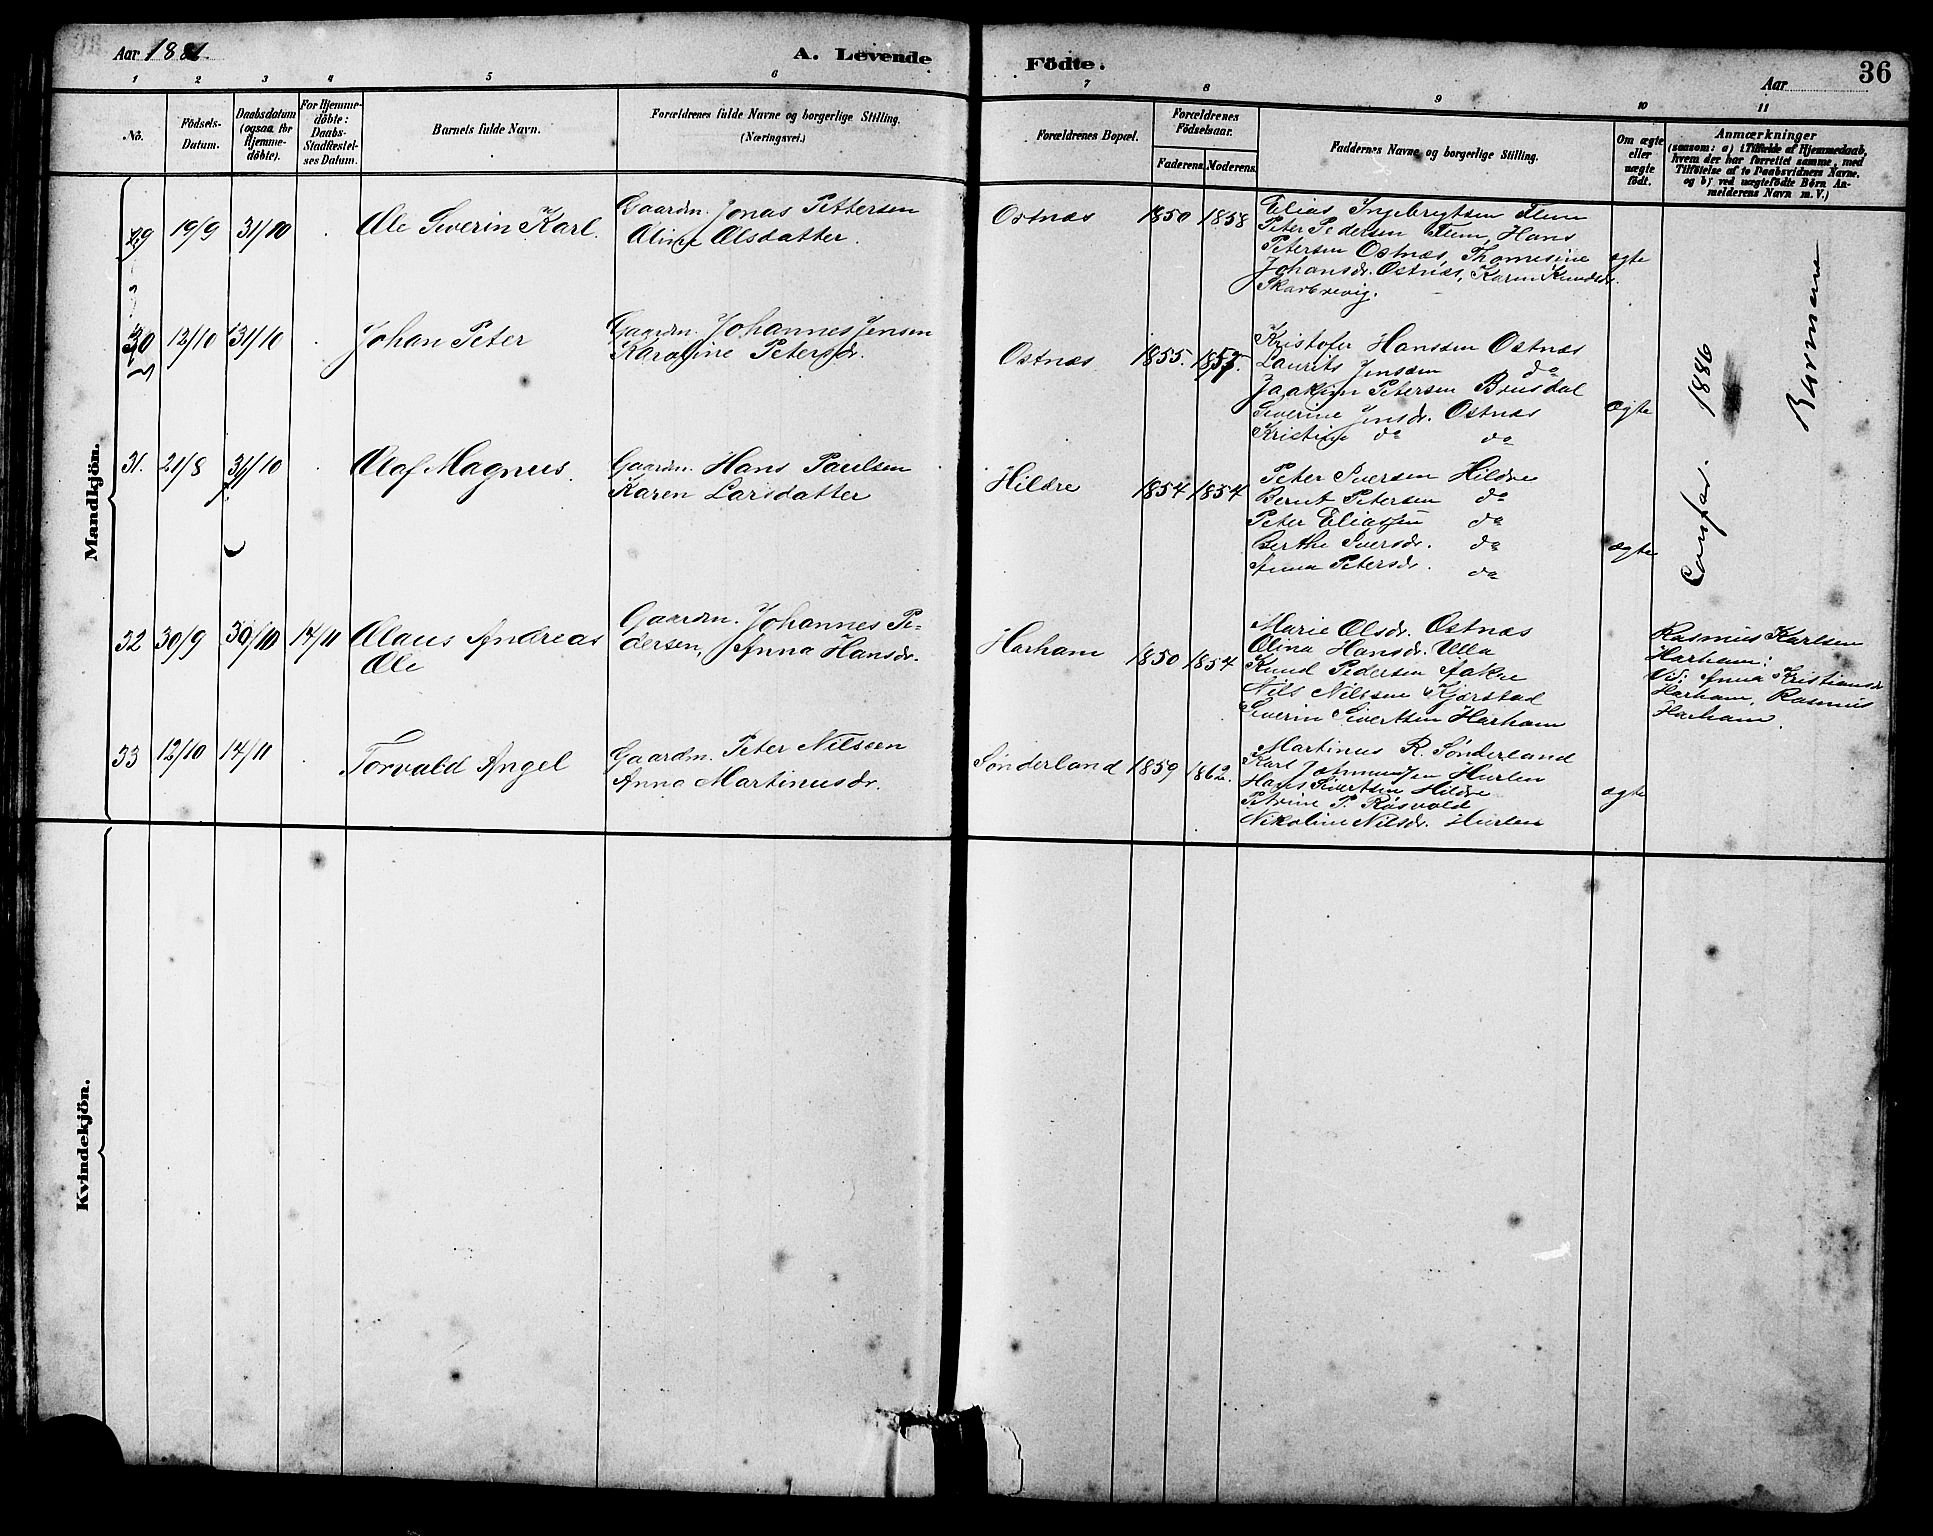 Aar 1881.
A. Levende Födte.
Aar
36
1 2 3 4 5 6 7 8 9 10 11
No.
Födsels-Datum.
Daabsdatum (ogsaa for Hjemme-döbte).
For Hjemme-döbte: Daabs-Stadfæstel-ses Datum.
Barnets fulde Navn.
Forældrenes fulde Navne og borgerlige Stilling.
(Næringsvei.)
Forældrenes Bopæl.
Forældrenes Födselsaar.
Faderens. Moderens.
Faddernes Navne og borgerlige Stilling.
Om ægte eller uægte födt.
Anmærkninger
(saasom: a) i Tilfælde af Hjemmedaab,
hvem der har forrettet samme, med
Tilföielse af to Daabsvidners Navne.
og b) ved uægtefödte Börn An-
melderens Navn m. V.)
Mandkjön.
29 19/9 31/10 Ole Severin Karl.
Gaardm. Jonas Pettersen
Oline Olsdatter.
Ostnæs 1850 1858
Elias Ingebrigtsen Flem
Peter Pedersen Flem, Hans
Petersen Ostnæs, Thomesine
Johansdr. Ostnæs, Karen Knudsdr.
Skarbrevig.
ægte
30 12/10 31/10 Johan Peter
Gaardm. Johannes Jensen
Karoline Petersdr.
Ostnæs 1855. 1857.
Kristofer Hansen Ostnæs
Laurits Jensen do
Joakim Petersen Brusdal
Severine Jensdr. Ostnæs
Kristine do do
ægte
31. 21/8 31/10 Olaf Magnus.
Gaardm. Hans Paulsen
Karen Larsdatter
Hildre 1854 1854
Peter Iversen Hildre
Bernt Petersen do
Peter Eliassen do
Berthe Iversdr. do
Anna Petersdr. do
ægte
32 30/9 30/10 14/11 Olaus Andreas
Ole
Gaardm. Johannes Pe-
dersen, Anna Hansdr.
Harham 1850 1854
Marie Olsdr. Ostnæs
Olina Hansdr. Ulla
Knud Pedersen Aakre
Nils Nilssen Kjerstad
Severin Sivertsen Harham
Rasmus Karlsen
Harham:
Vid: Anna Kristiansdr
Harham, Rasmus
Harham.
33 12/10 14/11 Torvald Angel
Gaardm. Peter Nilsen
Anna Martinusdr.
Sønderland 1859 1862.
Martinus R. Sønderland
Karl Johannessen Hurlen
Hans Sivertsen Hildre
Petrine P. Røsvold
Nikoline Nilsdr. Hurlen
ægte
1886
Kvindekjön.